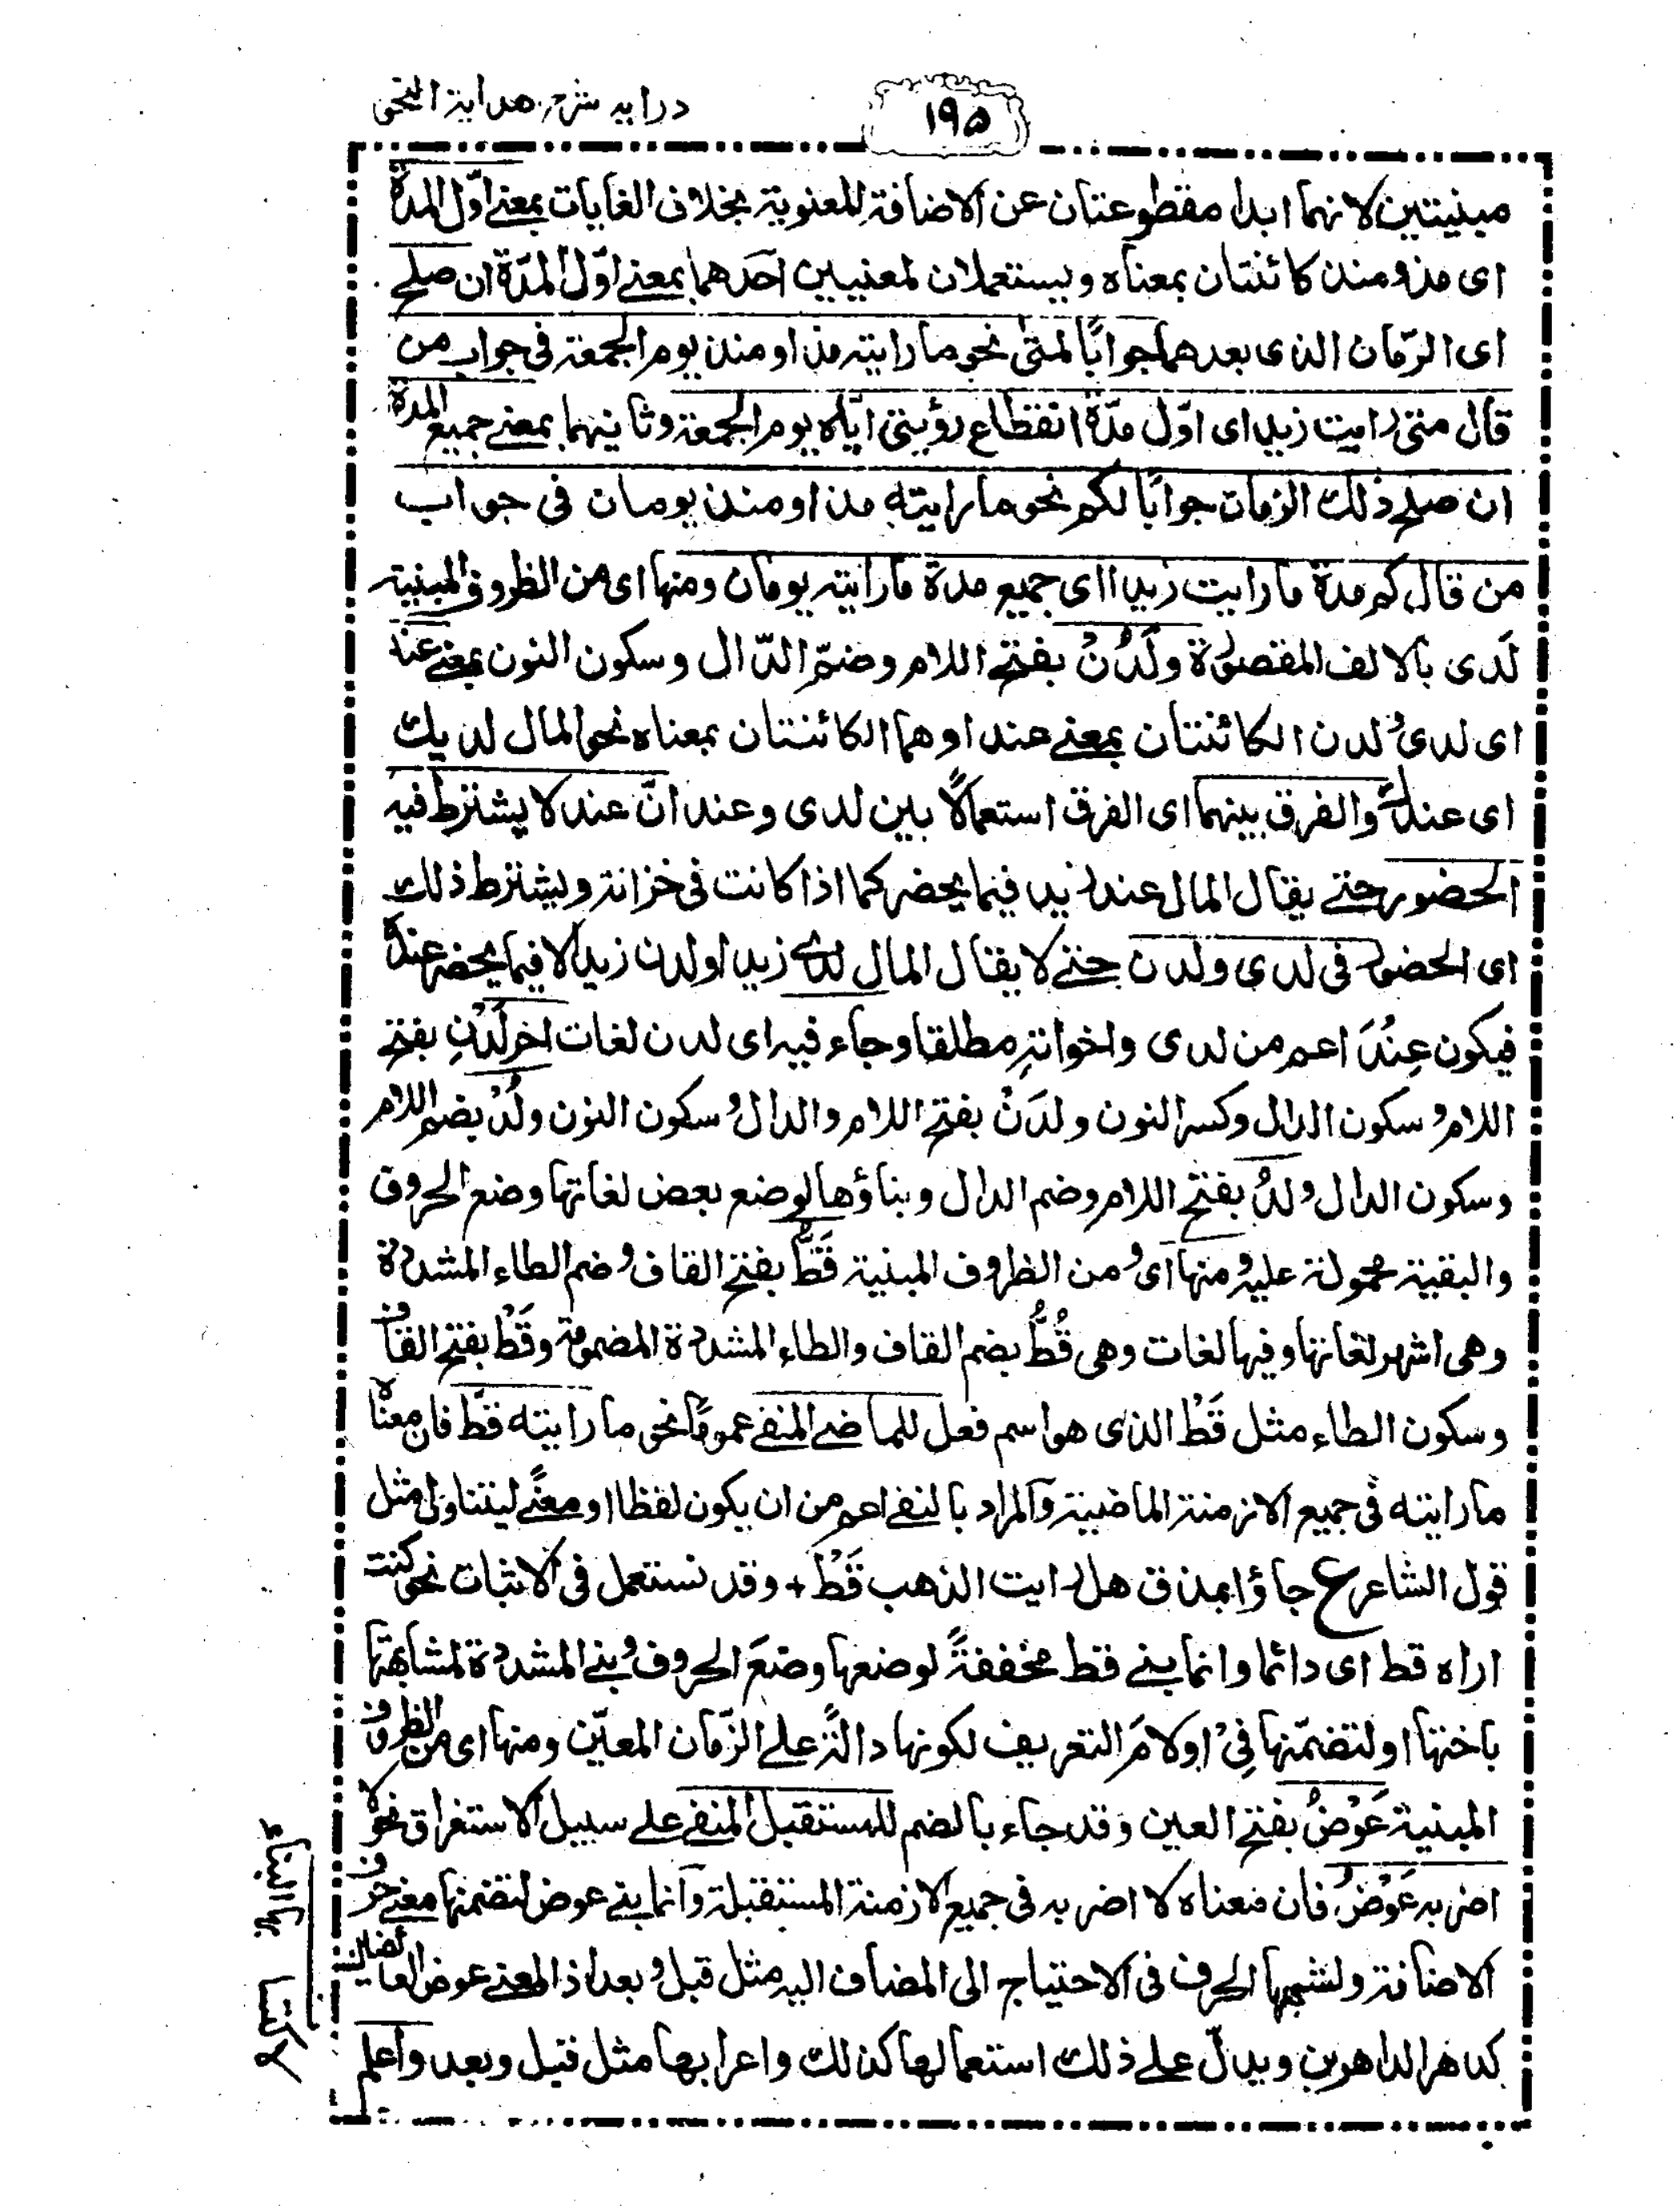 درایہ شرح ھدایة النحو
١٩۵
مبنيتين لانهما ابدا مقطوعتان عن الاضافة المعنوية بخلاف الغايات بمعنے اوّل المدة
ای مذ ومنذ كائنتان بمعناه ويستعملان لمعنيين احدهما بمعنے اوّل المدّة ان صلح
ای الزّمان الذی بعدهما جوابًا لمتیٰ نحو ما رايته مذ او منذ يوم الجمعة فی جواب من
قال متی رايت زيدا ای اوّل مدّة انقطاع رؤيتی ايّاه يوم الجمعة وثانيهما بمعنے جميع المدة
ان صلح ذلك الزمان جوابًا لكم نحو ما رايته مذ او منذ يومان فی جواب
من قال كم مدة ما رايت زيدا ای جميع مدة ما رايته يومان ومنها ای من الظروف المبنية
لَدی بالالف المقصورة ولَدُنْ بفتح اللام وضمّ الدّال وسكون النون بمعنے عند
ای لدی ولدن الكائنتان بمعنے عند او هما الكائنتان بمعناه نحو المال لديك
ای عندك والفرق بينهما ای الفرق استعمالًا بين لدی وعند انّ عند لا يشترط فيه
الحضور حتے يقال المال عند زيد فيما يحضر كما اذا كانت فی خزانة ويشترط ذلك
ای الحضور فی لدی ولدن حتے لا يقال المال لدے زيد او لدن زيد الا فيما يحضر عنده
فيكون عِنْدَ اعم من لدی واخواته مطلقا وجاء فيه ای لدن لغات اخر لَدْنِ بفتح
اللام وسكون الدال وكسر النون ولَدَنْ بفتح اللام والدال وسكون النون ولُدْ بضم اللام
وسكون الدال ولَدُ بفتح اللام وضم الدال وبناؤها لوضع بعض لغاتها وضع الحروف
والبقية محمولة عليه ومنها ای ومن الظروف المبنية قَطُّ بفتح القاف وضم الطاء المشددة
وهی اشهر لغاتها وفيها لغات وهی قُطُّ بضم القاف والطاء المشددة المضمومة وقَطْ بفتح القاف
وسكون الطاء مثل قَطْ الذی هو اسم فعل للماضے المنفے عموما نحو ما رايته قطّ فان معناه
ما رايته فی جميع الازمنة الماضية والمراد بالنفے اعم من ان يكون لفظا او معنًے ليتناول مثل
قول الشاعر ع جاؤا بمذق هل رايت الذهب قَطْ + وقد تستعمل فی الاثبات نحو كنت
اراه قط ای دائما وانما بنے قط مخففةً لوضعها وضعَ الحروف وبنے المشددة لمشابهتها
باختها او لتضمّنها فِیْ او لامَ التعريف لكونها دالّة علے الزّمان المعيّن ومنها ای من الظروف
المبنية عَوْضُ بفتح العين وقد جاء بالضم للمستقبل المنفے علے سبيل الاستغراق نحو لا
اضربه عَوْضُ فان معناه لا اضربه فی جميع الازمنة المستقبلة وانما بنے عوض لتضمنها معنے حرف
الاضافة ولشبهها الحرف فی الاحتياج الی المضاف اليه مثل قبل وبعد اذ المعنے عوض العائضين
كدهر الداهرين ويدلّ علے ذلك استعمالها كذلك واعرابها مثل قبل وبعد واعلم